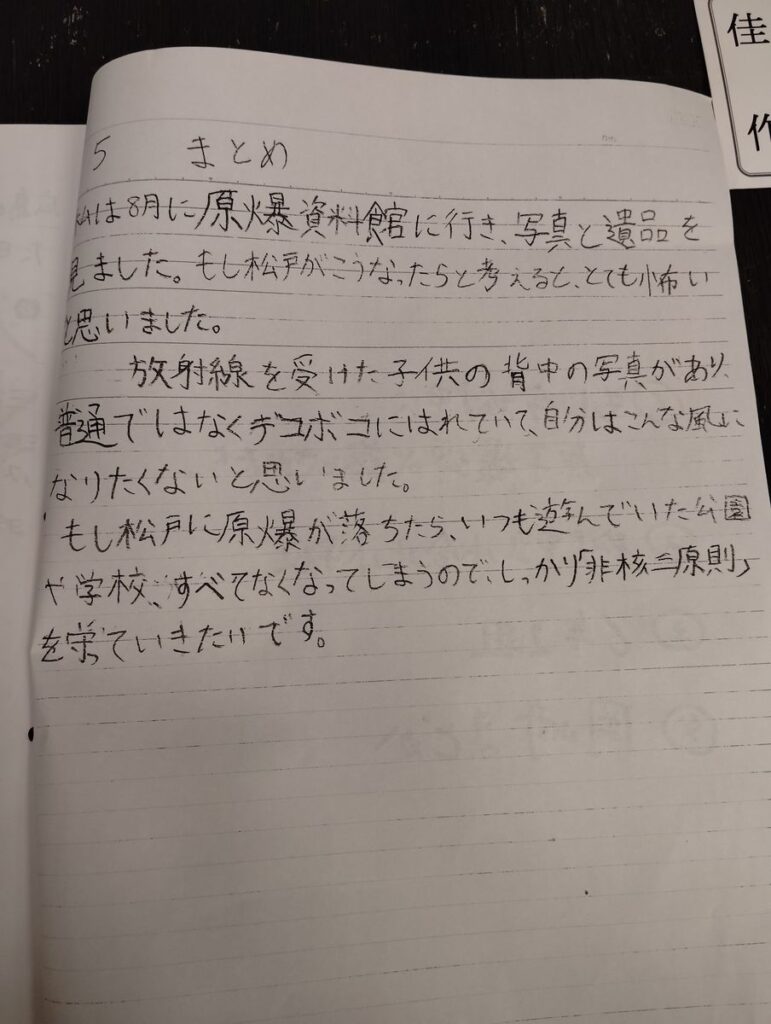 佳
作
5 まとめ
私は8月に原爆資料館に行き、写真と遺品を
見ました。もし松戸がこうなったらと考えると、とても怖い
と思いました。
放射線を受けた子供の背中の写真があり、
普通ではなくデコボコにはれていて、自分はこんな風に
なりたくないと思いました。
もし松戸に原爆が落ちたら、いつも遊んでいた公園
や学校、すべてなくなってしまうので、しっかり「非核三原則」
を栄っていきたいです。